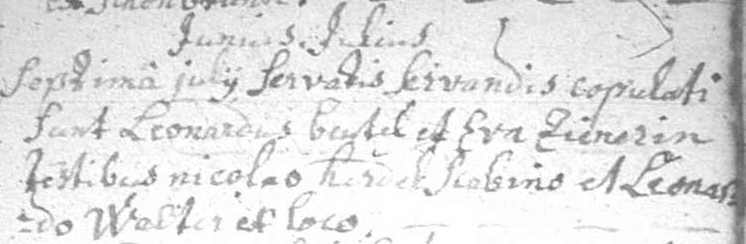 et
Junius. Julius
Septimâ julij servatis servandis copulati
sunt Leonardus bestel et Eva Zienerin
testibus nicolao herdel scabino et Leonar
=do Walter ex loco.